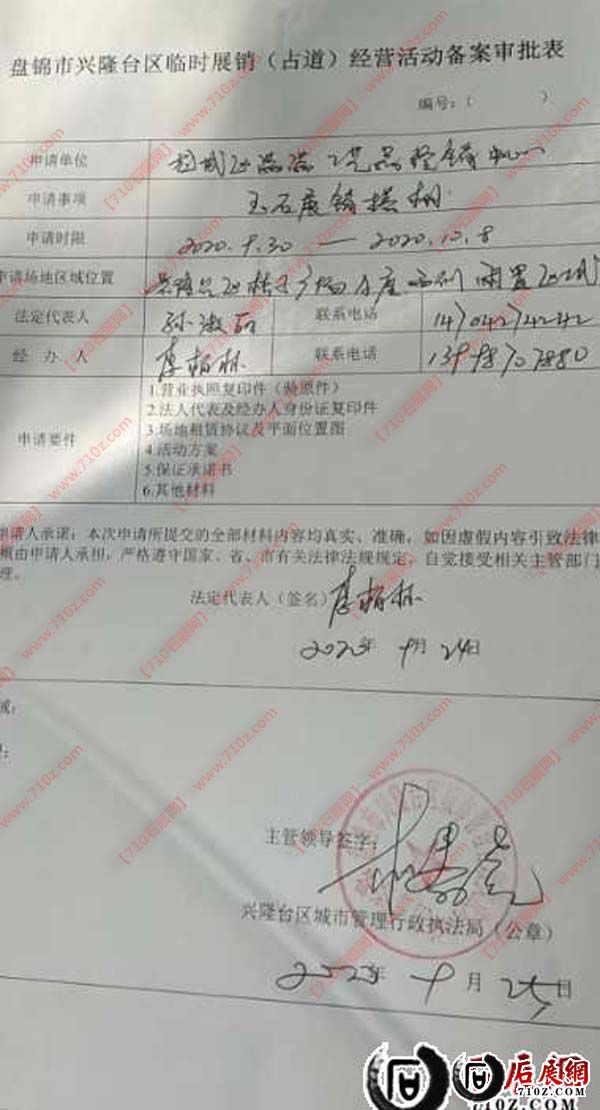 盘锦市兴隆台区临时展销（占道）经营活动备案审批表
编号：（ ）
申请单位
申请事项 玉石展销搭棚
申请时限 2020.9.30 — 2020.10.8
申请场地区域位置
法定代表人 孙淑丽 联系电话 14704274242
经 办 人 李栢林 联系电话
申请要件
1.营业执照复印件（验原件）
2.法人代表及经办人身份证复印件
3.场地租赁协议及平面位置图
4.活动方案
5.保证承诺书
6.其他材料
申请人承诺：本次申请所提交的全部材料内容均真实、准确，如因虚假内容引致法律
顺由申请人承担，严格遵守国家、省、市有关法律法规规定，自觉接受相关主管部门
理。
法定代表人（签名） 李栢林
2020年 9月 24日
主管领导签字：
兴隆台区城市管理行政执法局（公章）
2020年 9 月 25日
【710石展网】www.710z.com
石展网
710Z.COM